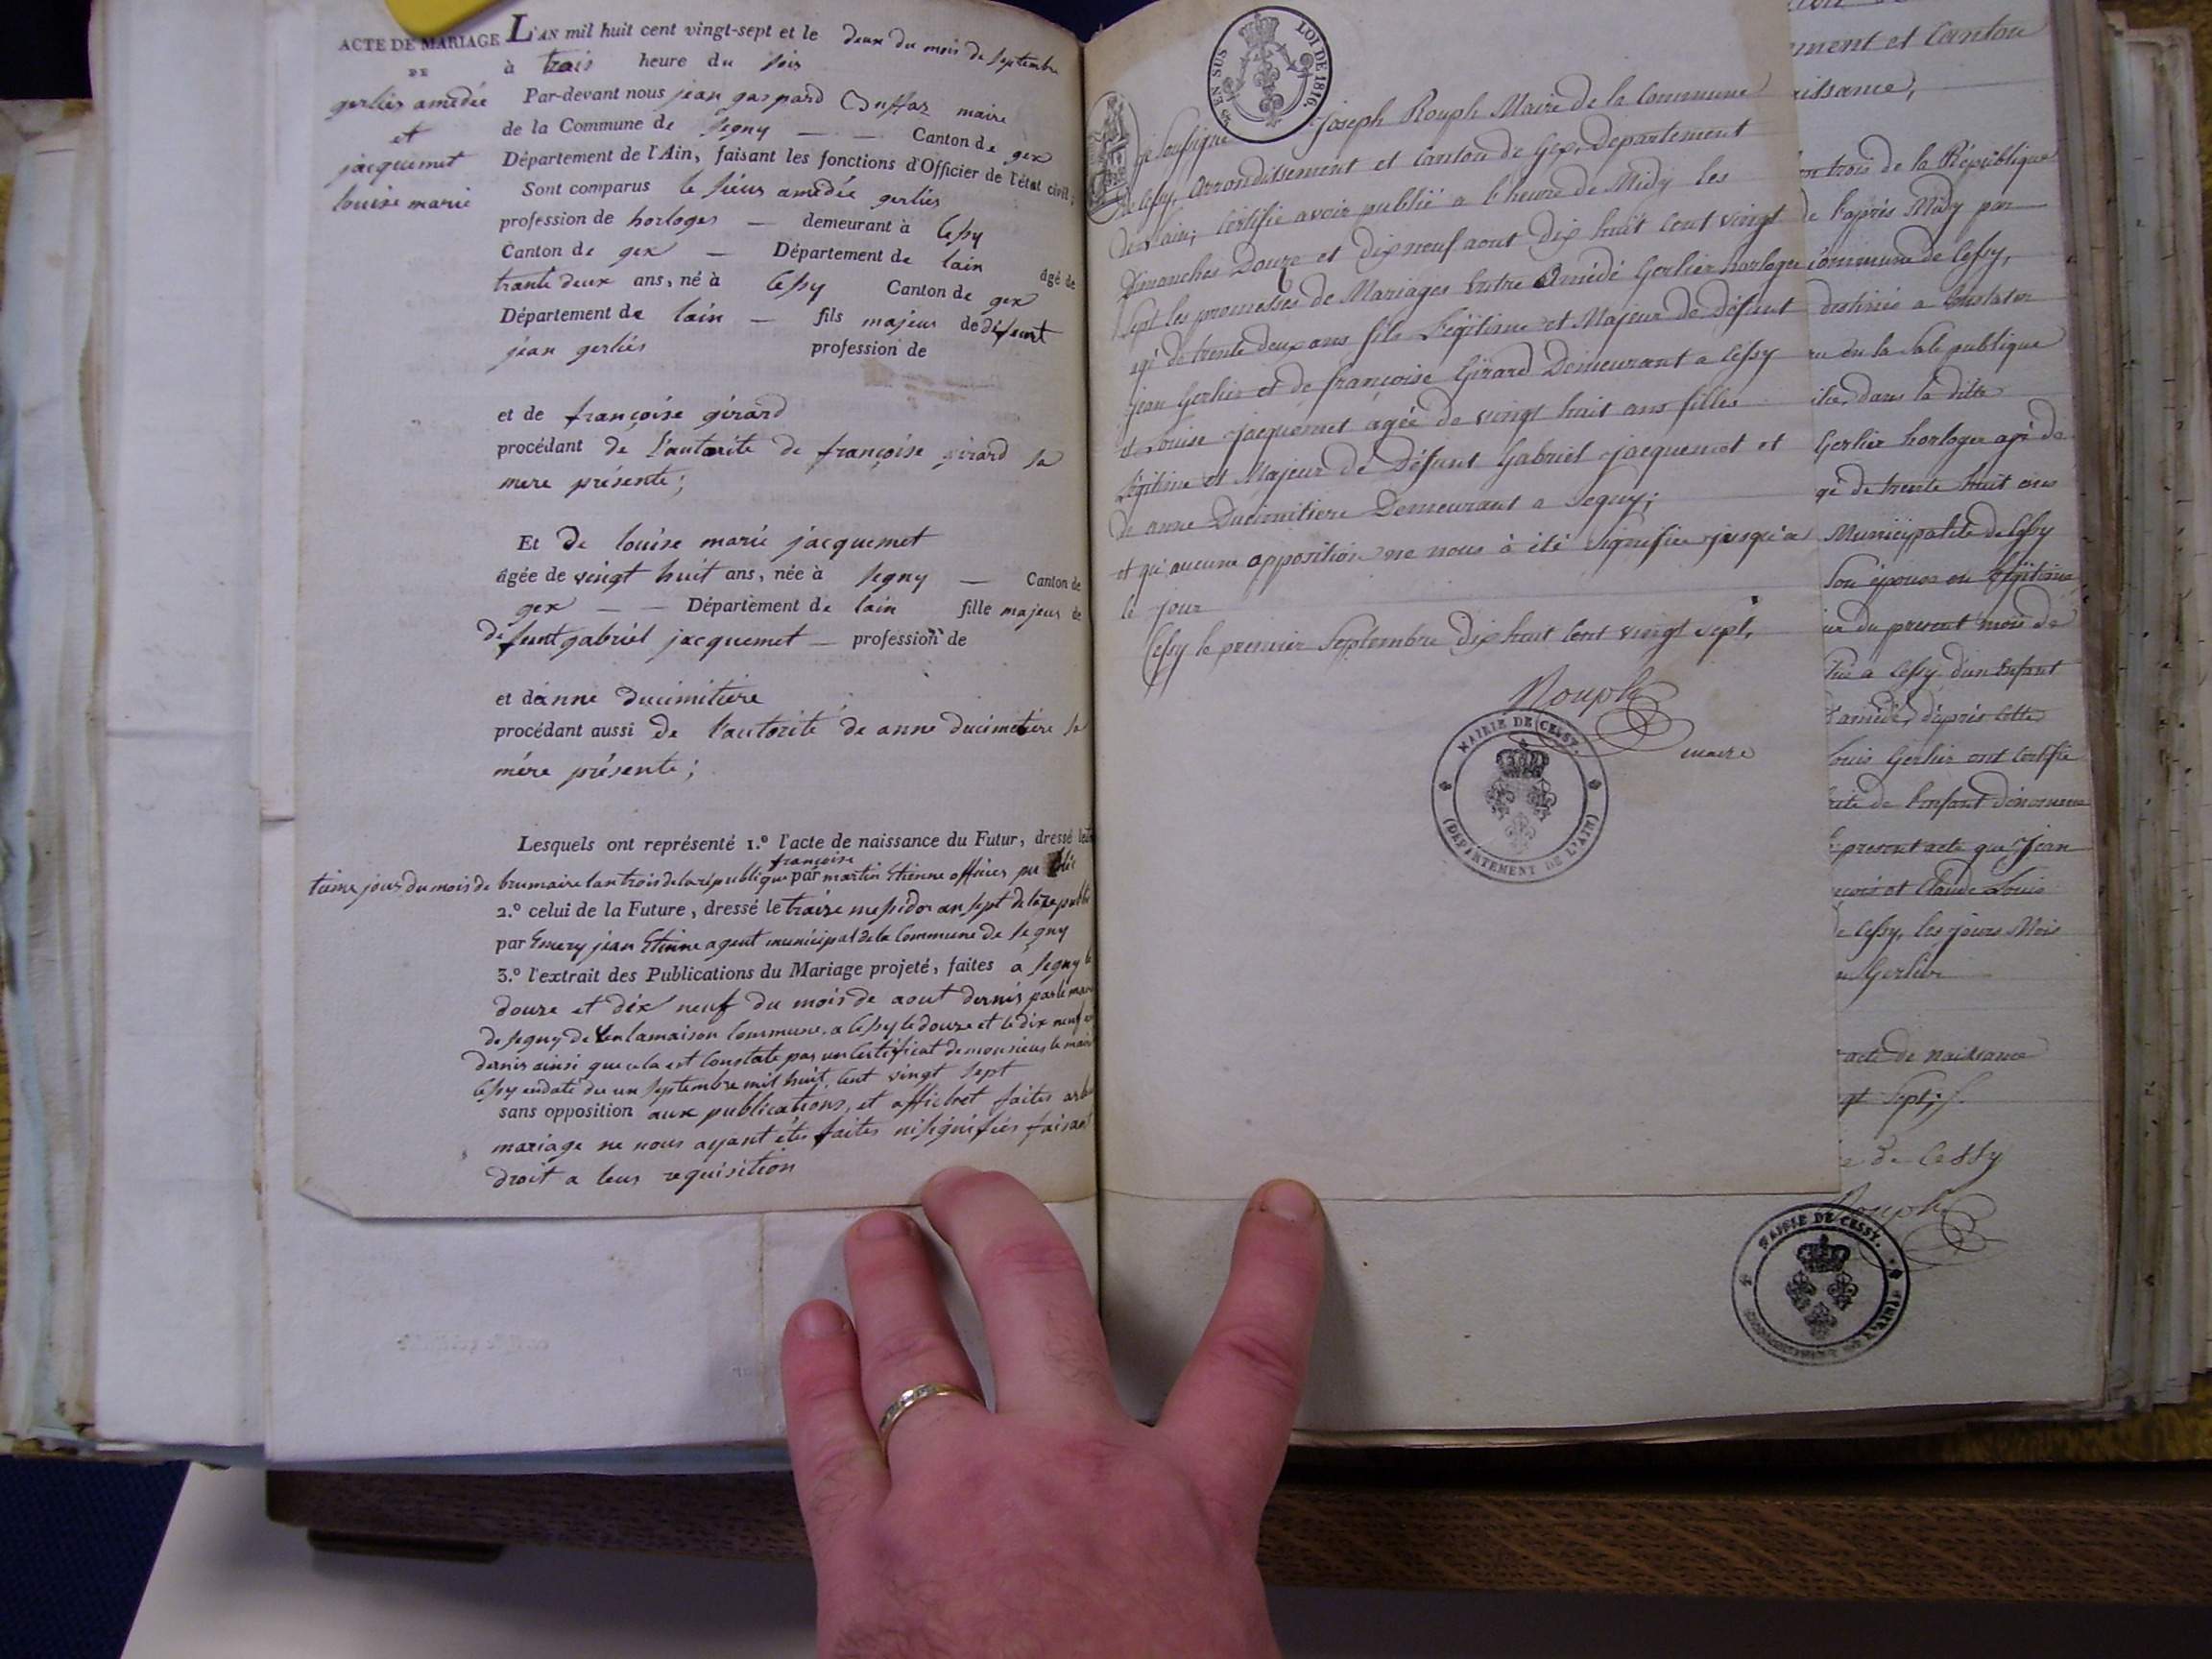 ACTE DE MARIAGE
DE
gerlier amédée
et
jacquemet
louise marie
L'AN mil huit cent vingt-sept et le deux du mois de septembre
à trais heure du soir
Par-devant nous jean gaspard maire
de la Commune de segny — — Canton de gex
Département de l'Ain, faisant les fonctions d'Officier de l'état civil;
Sont comparus le sieur amédée gerlier
profession de horloger — demeurant à Cessy
Canton de gex — Département de lain âgé de
trante deux ans, né à Cessy Canton de gex
Département de lain — fils majeur de défeunt
jean gerlier profession de
et de françoise girard
procédant de l'autorité de françoise girard sa
mere présente;
Et de louise marie jacquemet
âgée de vingt huit ans, née à segny — Canton de
gex — — Département de lain fille majeur de
defeunt gabriel jacquemet — profession de
et de anne ducimitiere
procédant aussi de l'autorité de anne ducimetiere sa
mère présente;
Lesquels ont représenté 1.º l'acte de naissance du Futur, dressé le
jour du mois de brumaire lan trois de la république françoise par martin Etienne officier
2.º celui de la Future, dressé le traize messidor an sept de la
par Emery jean Etienne agent municipal de la Commune de segny
3.º l'extrait des Publications du Mariage projeté, faites à segny le
douze et dix neuf du mois de aout dernier par le maire
de segny de en la maison Commune. a Cessy le douze et le dix neuf
dernier ainsi que cela est Constate par un Certificat de monsieur le maire
Cessy en date du un septembre mil huit Cent vingt sept
sans opposition aux publications, et affichet faites
mariage ne nous ayant étés faites ni signifiés faisant
droit a leur requisition
EN SUS
LOI DE 1816.
je soussigné Joseph Rouph Maire de la Commune
de Cessy, arrondissement et Canton de Gex, Departement
de l'ain; Certifie avoir publié a l'heure de Midy les
Dimanches Douze et dix neuf aout dix huit Cent vingt
sept les promesses de Mariages Entre Amédé Gerlier horloger
agé de trente deux ans fils Légitime et Majeur de Défunt
jean Gerlier et de françoise Girard Demeurant a Cessy
et Louise jacquemet agée de vingt huit ans filles
Légitime et Majeur de Défunt Gabriel jacquemet et
de anne Ducimitiere Demeurant a Segny;
et qu'aucune apposition ne nous à été signifiée jusqu'a
le jour
Cessy le premier Septembre dix huit Cent vingt sept.
Rouph
maire
MAIRIE DE CESSY.
(DÉPARTEMENT DE L'AIN)
et Canton
trois de la République
de l'après Midy par
Commune de Cessy,
destinés a Constater
la Sale publique
dans la ditte
Gerlier horloger agé de
de trente huit ans
Municipalité de Cessy
Son épouse en légitime
du present mois de
a Cessy d'un Enfant
amédé, d'après cette
Louis Gerlier ont Certifié
de l'enfant dénommé
present acte que Jean
et Claude Louis
Cessy, les jours Mois
Gerlier
acte de naissance
Sept;
de Cessy
Rouph
MAIRIE DE CESSY.